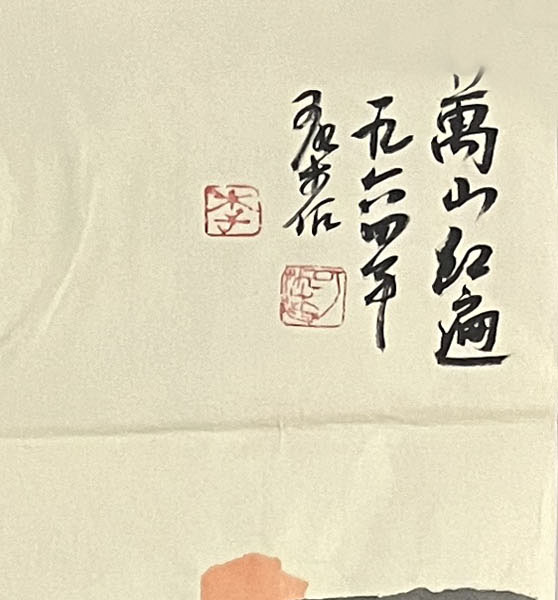 萬山红遍
一九六四年
可染作
李
可染